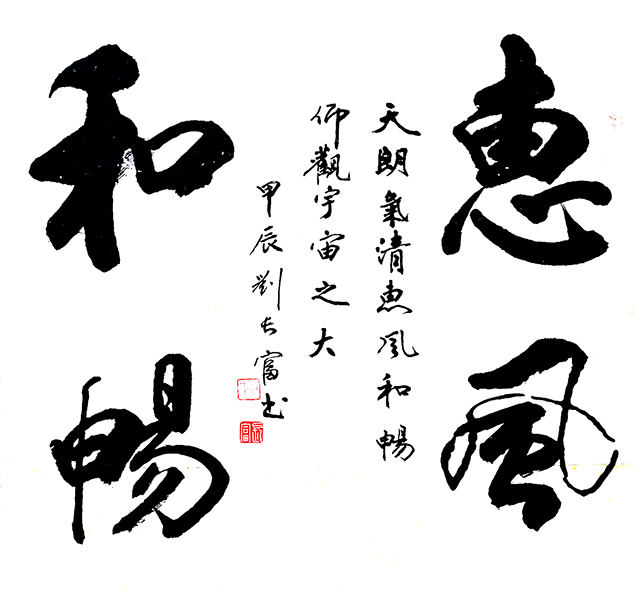 惠風
天朗氣清惠風和暢
仰觀宇宙之大
甲辰劉長富书
和暢